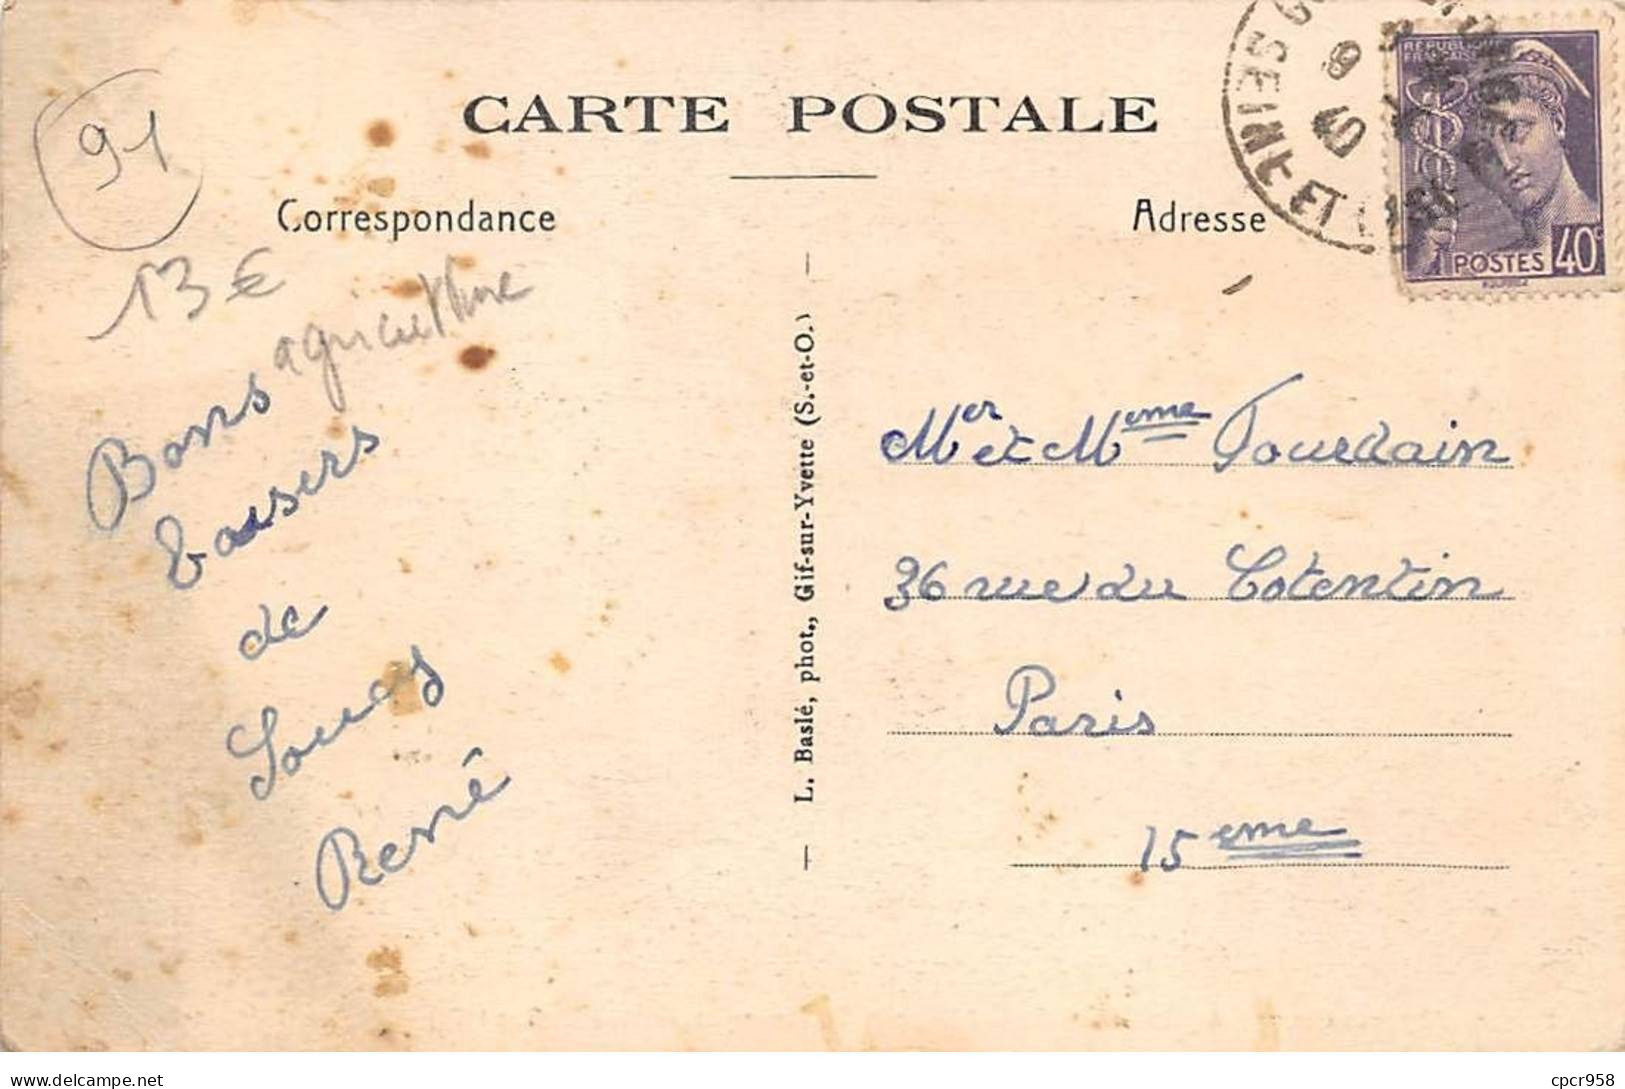 CARTE POSTALE
Correspondance
Adresse
91
13 €
agriculture
Bons
baisers
de
Soucy
René
L. Baslé, phot., Gif-sur-Yvette (S.-et-O.)
SEINE-ET
9
40
REPUBLIQUE
FRANÇAISE
POSTES 40c
Mer et Meme Jourdain
36 rue du Cotentin
Paris
15eme
delcampe.net
cpcr958